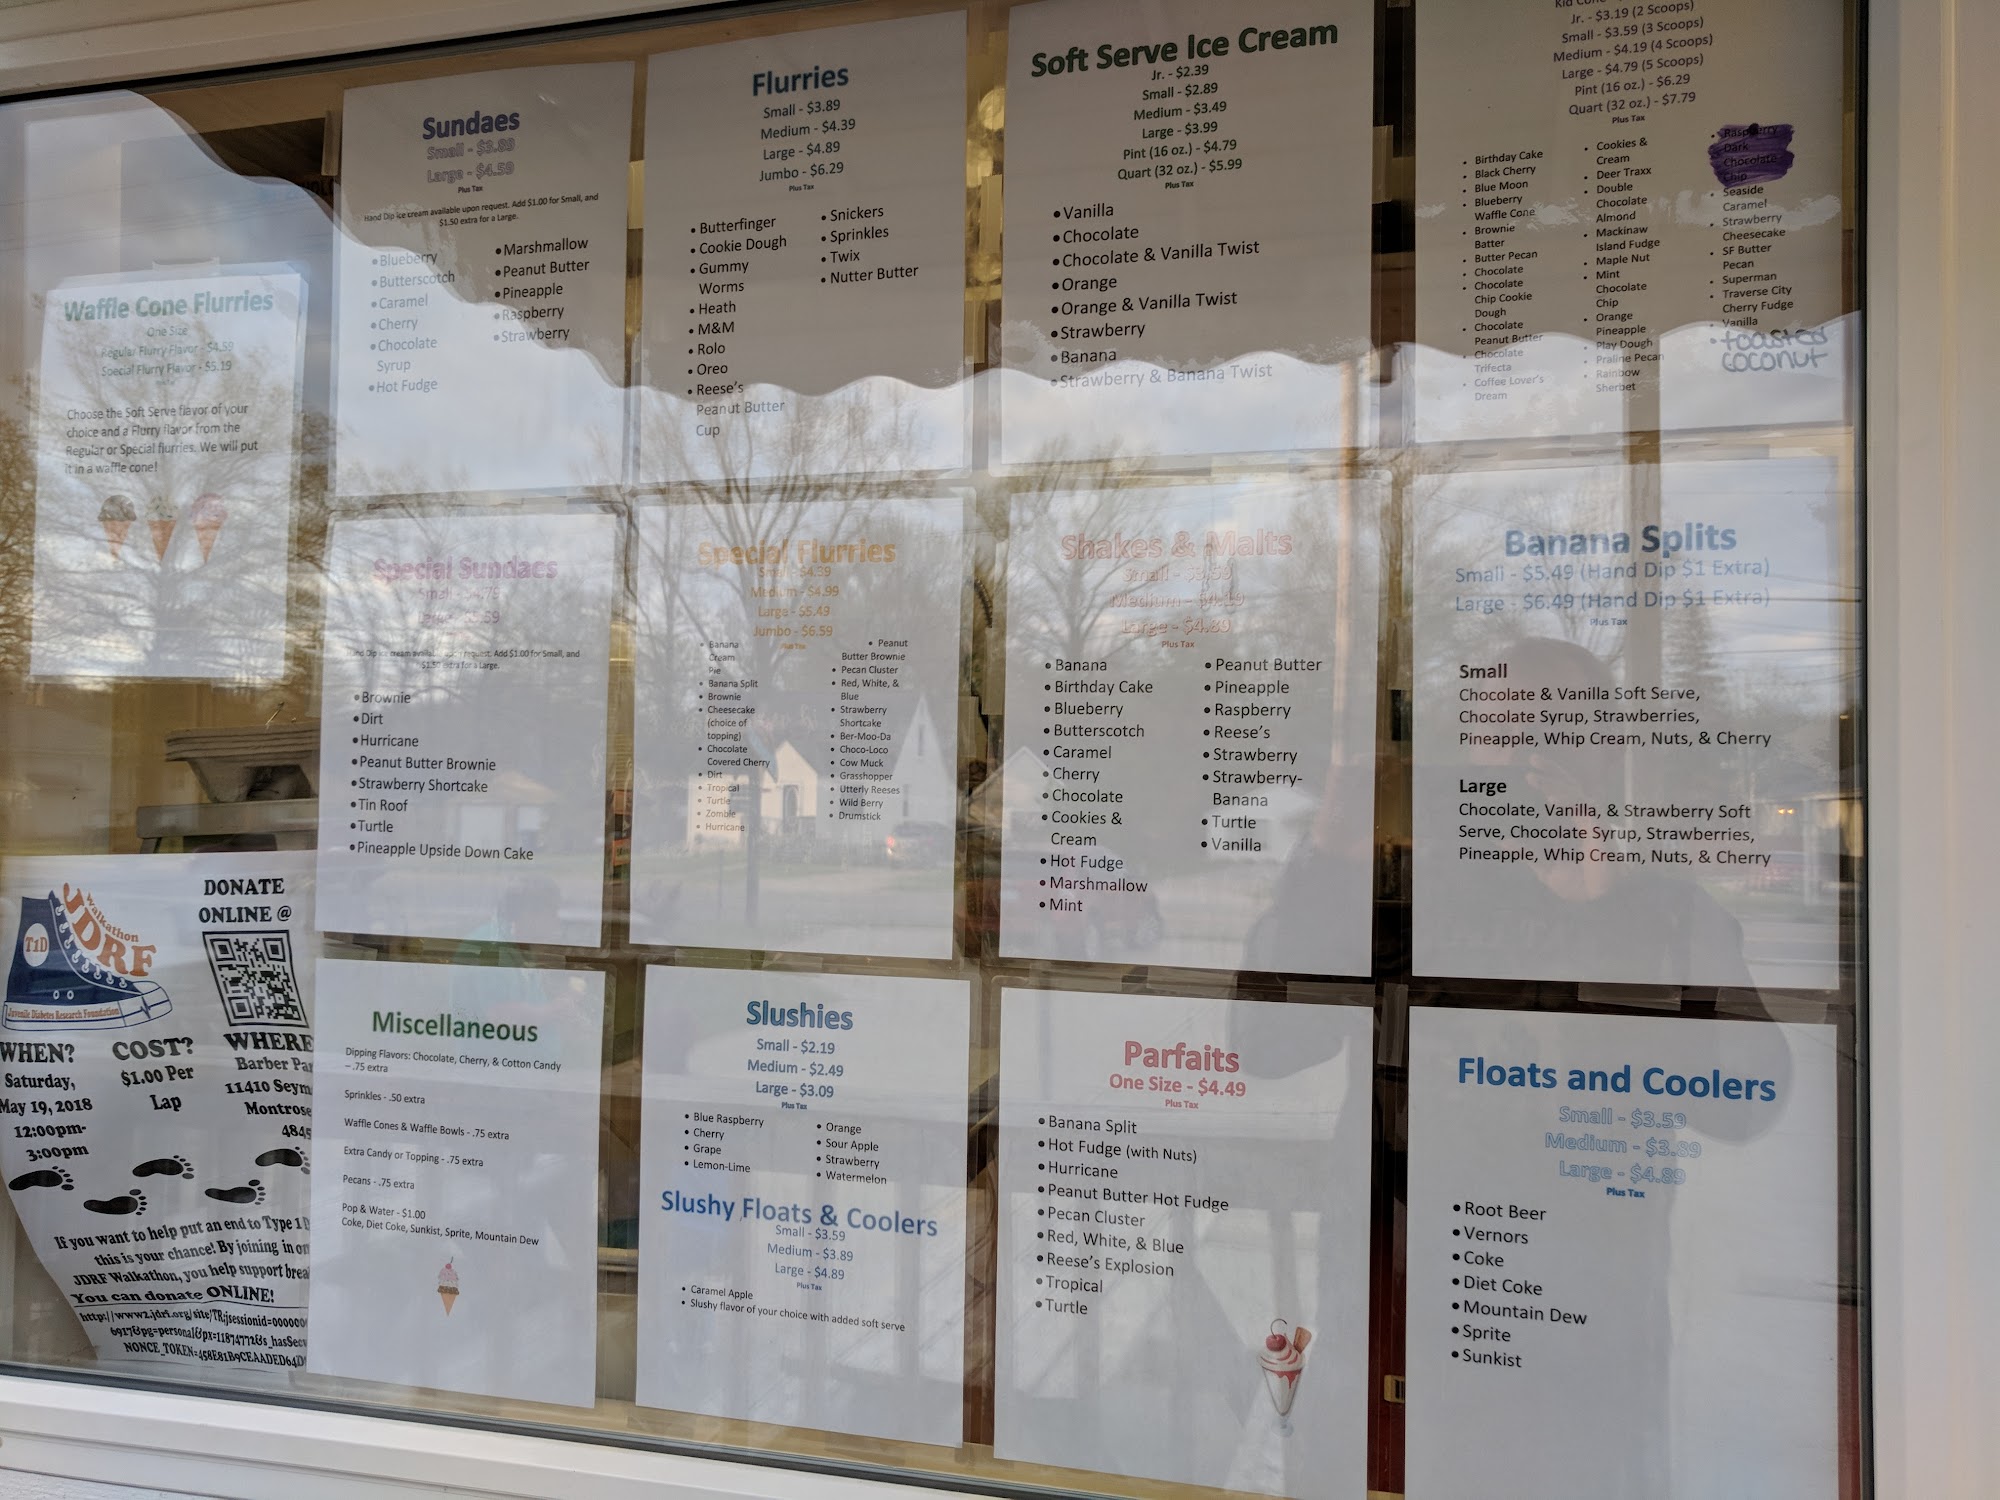 Waffle Cone Flurries
One Size
Regular Flurry Flavor - $4.59
Special Flurry Flavor - $5.19
Choose the Soft Serve flavor of your
choice and a Flurry flavor from the
Regular or Special flurries. We will put
it in a waffle cone!
Sundaes
Small - $3.89
Large - $4.59
Plus Tax
Hand Dip ice cream available upon request. Add $1.00 for Small, and
$1.50 extra for a Large.
• Blueberry
• Butterscotch
• Caramel
• Cherry
• Chocolate
Syrup
• Hot Fudge
• Marshmallow
• Peanut Butter
• Pineapple
• Raspberry
• Strawberry
Flurries
Small - $3.89
Medium - $4.39
Large - $4.89
Jumbo - $6.29
Plus Tax
• Butterfinger
• Cookie Dough
• Gummy
Worms
• Heath
• M&M
• Rolo
• Oreo
• Reese's
Peanut Butter
Cup
• Snickers
• Sprinkles
• Twix
• Nutter Butter
Soft Serve Ice Cream
Jr. - $2.39
Small - $2.89
Medium - $3.49
Large - $3.99
Pint (16 oz.) - $4.79
Quart (32 oz.) - $5.99
Plus Tax
• Vanilla
• Chocolate
• Chocolate & Vanilla Twist
• Orange
• Orange & Vanilla Twist
• Strawberry
• Banana
• Strawberry & Banana Twist
Kid Cone
Jr. - $3.19 (2 Scoops)
Small - $3.59 (3 Scoops)
Medium - $4.19 (4 Scoops)
Large - $4.79 (5 Scoops)
Pint (16 oz.) - $6.29
Quart (32 oz.) - $7.79
Plus Tax
• Birthday Cake
• Black Cherry
• Blue Moon
• Blueberry
Waffle Cone
• Brownie
Batter
• Butter Pecan
• Chocolate
• Chocolate
Chip Cookie
Dough
• Chocolate
Peanut Butter
• Chocolate
Trifecta
• Coffee Lover's
Dream
• Cookies &
Cream
• Deer Traxx
• Double
Chocolate
Almond
• Mackinaw
Island Fudge
• Maple Nut
• Mint
Chocolate
Chip
• Orange
Pineapple
• Play Dough
• Praline Pecan
• Rainbow
Sherbet
• Raspberry
Dark
Chocolate
Chip
• Seaside
Caramel
• Strawberry
Cheesecake
• SF Butter
Pecan
• Superman
• Traverse City
Cherry Fudge
• Vanilla
• toasted
coconut
Special Sundaes
Small - $4.79
Hand Dip ice cream available upon request. Add $1.00 for Small, and
$1.50 extra for a Large.
• Brownie
• Dirt
• Hurricane
• Peanut Butter Brownie
• Strawberry Shortcake
• Tin Roof
• Turtle
• Pineapple Upside Down Cake
Special Flurries
Small - $4.39
Medium - $4.99
Large - $5.49
Jumbo - $6.59
Plus Tax
• Banana
Cream
Pie
• Banana Split
• Brownie
• Cheesecake
(choice of
topping)
• Chocolate
Covered Cherry
• Dirt
• Tropical
• Turtle
• Zombie
• Hurricane
• Peanut
Butter Brownie
• Pecan Cluster
• Red, White, &
Blue
• Strawberry
Shortcake
• Ber-Moo-Da
• Choco-Loco
• Cow Muck
• Grasshopper
• Utterly Reeses
• Wild Berry
• Drumstick
Shakes & Malts
Small -
Medium - $4.19
Large - $4.89
Plus Tax
• Banana
• Birthday Cake
• Blueberry
• Butterscotch
• Caramel
• Cherry
• Chocolate
• Cookies &
Cream
• Hot Fudge
• Marshmallow
• Mint
• Peanut Butter
• Pineapple
• Raspberry
• Reese's
• Strawberry
• Strawberry-
Banana
• Turtle
• Vanilla
Banana Splits
Small - $5.49 (Hand Dip $1 Extra)
Large - $6.49 (Hand Dip $1 Extra)
Plus Tax
Small
Chocolate & Vanilla Soft Serve,
Chocolate Syrup, Strawberries,
Pineapple, Whip Cream, Nuts, & Cherry
Large
Chocolate, Vanilla, & Strawberry Soft
Serve, Chocolate Syrup, Strawberries,
Pineapple, Whip Cream, Nuts, & Cherry
Walkathon
JDRF
T1D
Juvenile Diabetes Research Foundation
DONATE
ONLINE @
WHEN?
Saturday,
May 19, 2018
12:00pm-
3:00pm
COST?
$1.00 Per
Lap
WHERE
Barber Pa
11410 Seym
Montrose
484
If you want to help put an end to Type 1 D
this is your chance! By joining in on
JDRF Walkathon, you help support brea
You can donate ONLINE!
http://www2.jdrf.org/site/TR;jsessionid=000000
6917&pg=personal&px=11874772&s_hasSec
NONCE_TOKEN=458E81B9CEAADED64D
Miscellaneous
Dipping Flavors: Chocolate, Cherry, & Cotton Candy
– .75 extra
Sprinkles - .50 extra
Waffle Cones & Waffle Bowls - .75 extra
Extra Candy or Topping - .75 extra
Pecans - .75 extra
Pop & Water - $1.00
Coke, Diet Coke, Sunkist, Sprite, Mountain Dew
Slushies
Small - $2.19
Medium - $2.49
Large - $3.09
Plus Tax
• Blue Raspberry
• Cherry
• Grape
• Lemon-Lime
• Orange
• Sour Apple
• Strawberry
• Watermelon
Slushy Floats & Coolers
Small - $3.59
Medium - $3.89
Large - $4.89
Plus Tax
• Caramel Apple
• Slushy flavor of your choice with added soft serve
Parfaits
One Size - $4.49
Plus Tax
• Banana Split
• Hot Fudge (with Nuts)
• Hurricane
• Peanut Butter Hot Fudge
• Pecan Cluster
• Red, White, & Blue
• Reese's Explosion
• Tropical
• Turtle
Floats and Coolers
Small - $3.59
Medium - $3.89
Large - $4.89
Plus Tax
• Root Beer
• Vernors
• Coke
• Diet Coke
• Mountain Dew
• Sprite
• Sunkist